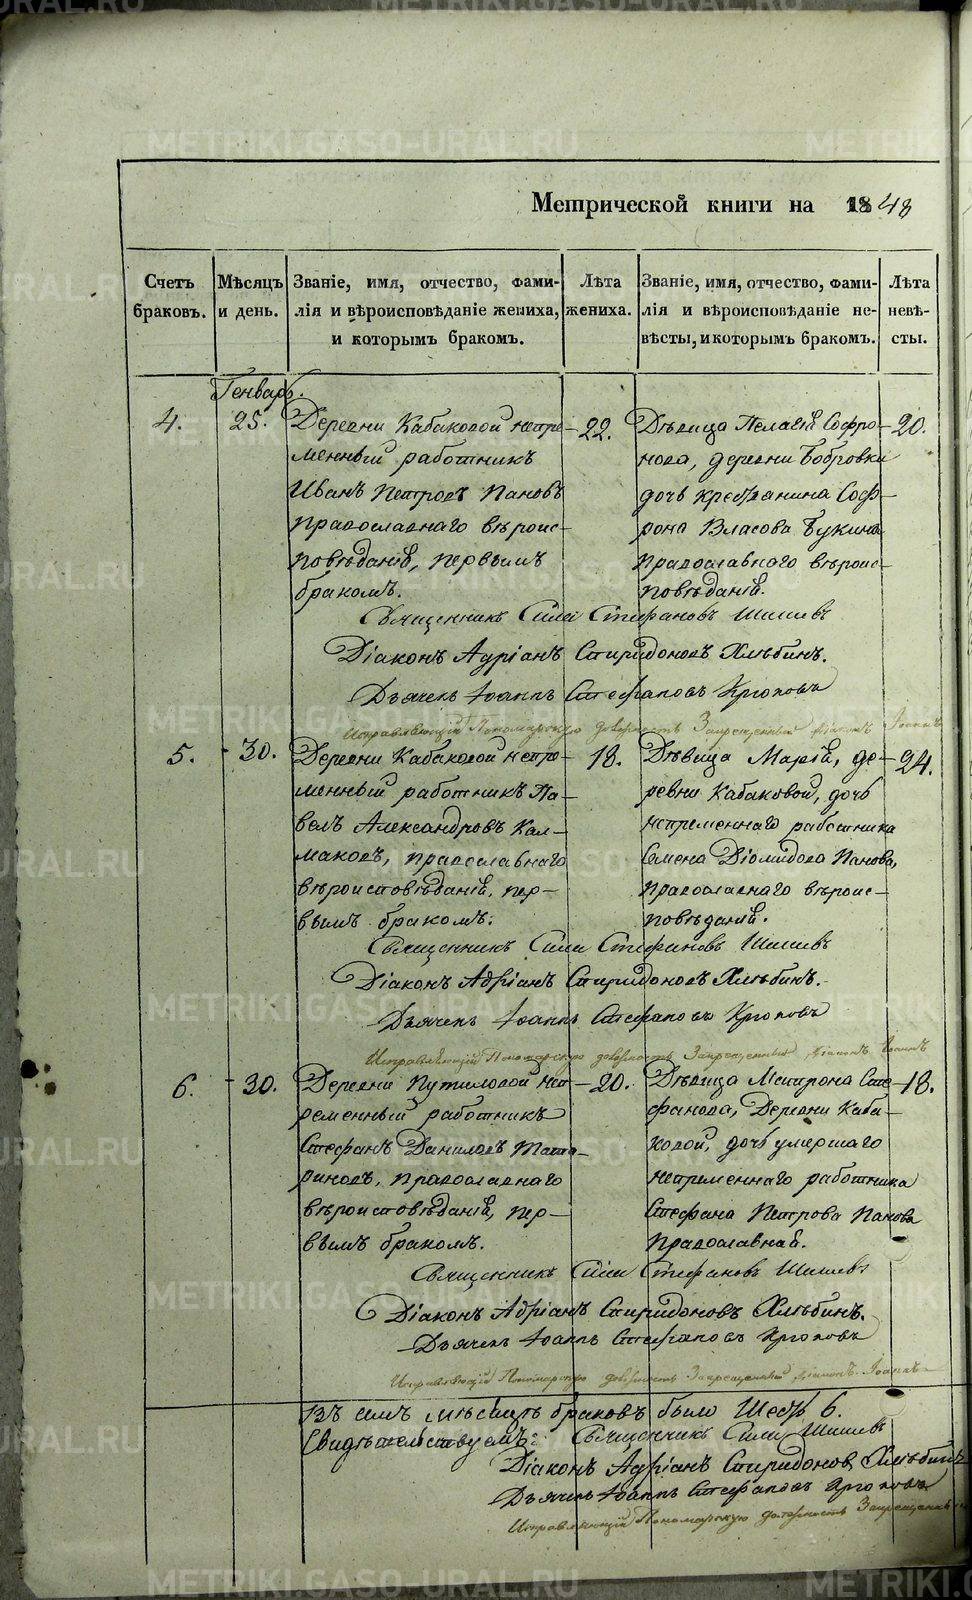 METRIKI.GASO-URAL.RU
Метрической книги на 1848
Счетъ браковъ.
Мѣсяцъ и день.
Званіе, имя, отчество, фами-
лія и вѣроисповѣданіе жениха,
и которымъ бракомъ.
Лѣта жениха.
Званіе, имя, отчество, фами-
лія и вѣроисповѣданіе не-
вѣсты, и которымъ бракомъ.
Лѣта невѣ-
сты.
Генварь.
4. 25.
Деревни Кабаковой непре-
менный работникъ
Иванъ Петровъ Пановъ
православнаго вѣроис-
повѣданія, первымъ
бракомъ.
22.
Дѣвица Пелагія Софро-
нова, деревни Бобровки
дочь крестьянина Соф-
рона Власова Букина
православнаго вѣроис-
повѣданія.
20.
Священникъ Сила Стефановъ Шишевъ
Діаконъ Адріанъ Спиридоновъ Хлѣбинъ.
Дьячекъ Іоаннъ Стефановъ Крюковъ
Исправляющій Пономарскую должность Запрещенный діаконъ Іоаннъ
5. 30.
Деревни Кабаковой непре-
менный работникъ Па-
велъ Александровъ Кал-
маковъ, православнаго
вѣроисповѣданія, пер-
вымъ бракомъ.
18.
Дѣвица Марія, де-
ревни Кабаковой, дочь
непременнаго работника
Семена Діомидова Панова,
православнаго вѣроис-
повѣданія.
24.
Священникъ Сила Стефановъ Шишевъ
Діаконъ Адріанъ Спиридоновъ Хлѣбинъ.
Дьячекъ Іоаннъ Стефановъ Крюковъ
Исправляющій Пономарскую должность Запрещенный діаконъ Іоаннъ
6. 30.
Деревни Путиловой неп-
ременный работникъ
Стефанъ Даниловъ Тата-
риновъ, православнаго
вѣроисповѣданія, пер-
вымъ бракомъ.
20.
Дѣвица Матрона Сте-
фанова, Деревни Каба-
ковой, дочь умершаго
непременнаго работника
Стефана Петрова Панова
православная.
18.
Священникъ Сила Стефановъ Шишевъ
Діаконъ Адріанъ Спиридоновъ Хлѣбинъ.
Дьячекъ Іоаннъ Стефановъ Крюковъ
Исправляющій Пономарскую должность Запрещенный діаконъ Іоаннъ
Въ семъ мѣсяцѣ браковъ было Шесть 6.
Свидѣтельствуемъ: Священникъ Сила Шишевъ
Діаконъ Адріанъ Спиридоновъ Хлѣбинъ
Дьячекъ Іоаннъ Стефановъ Крюковъ
Исправляющій Пономарскую должность Запрещенный